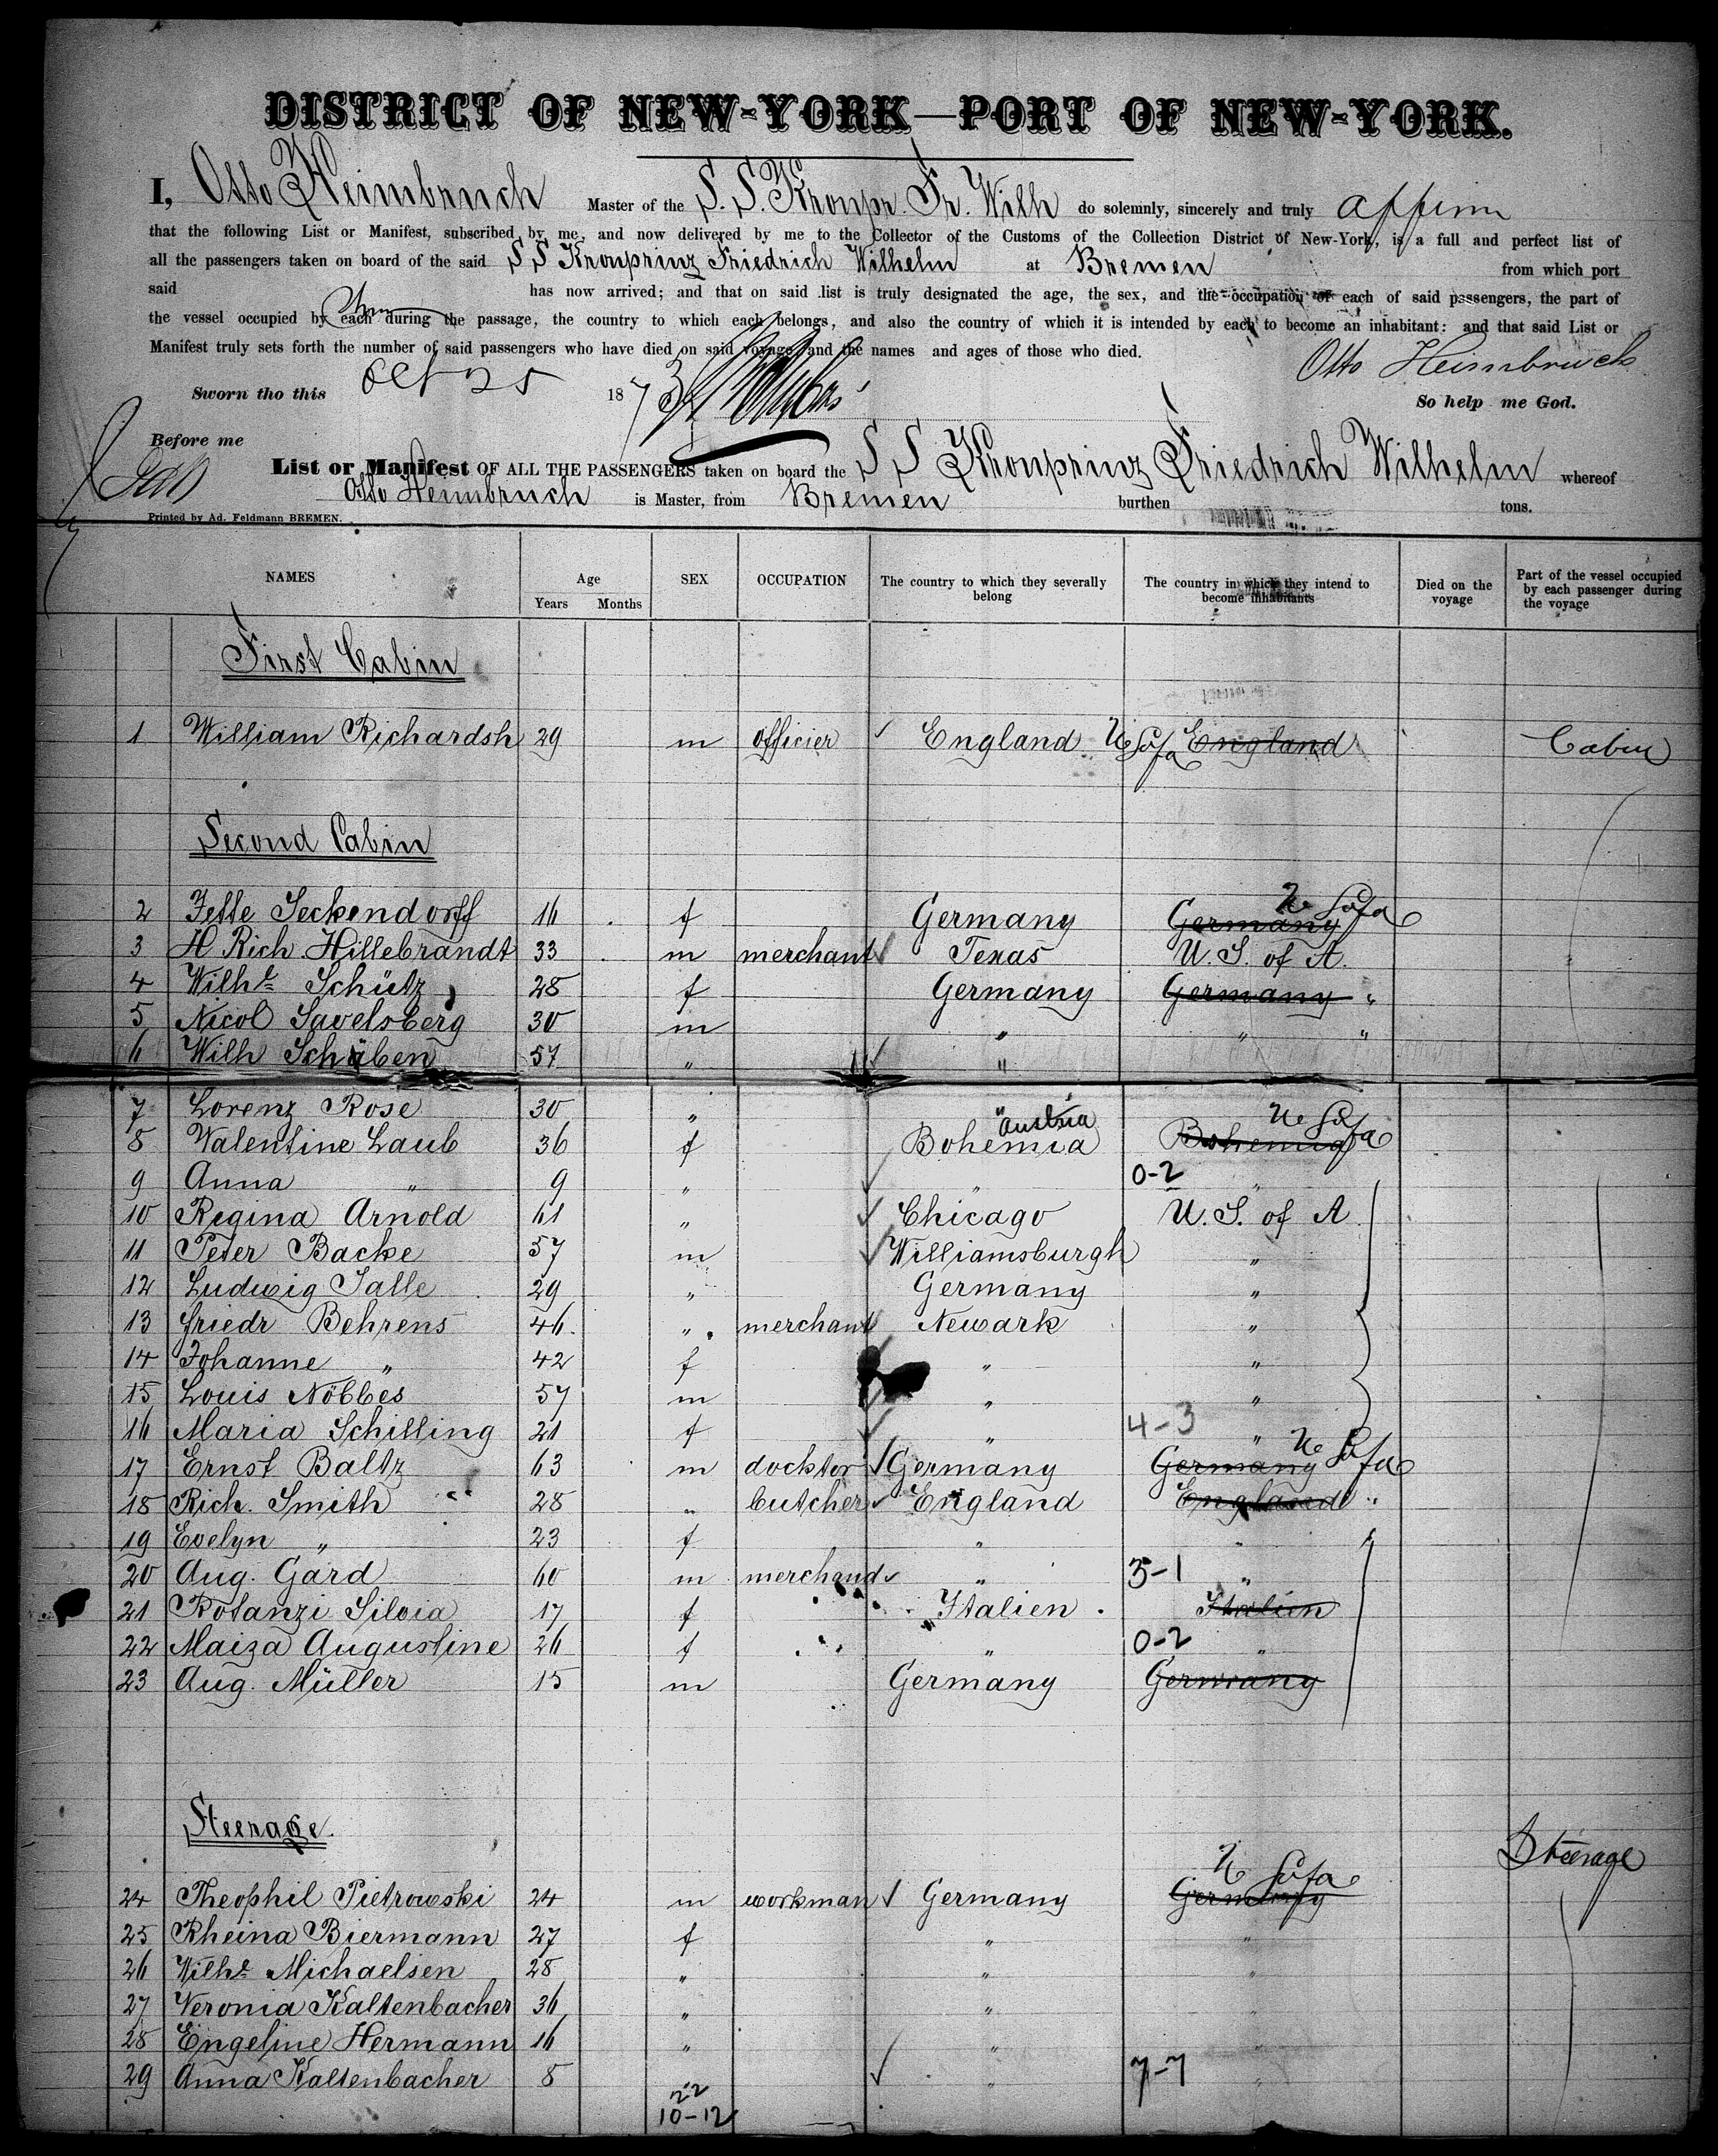 DISTRICT OF NEW-YORK—PORT OF NEW-YORK.
I, Otto Heimbruch Master of the S. S. Kronpr. Fr. Wilh do solemnly, sincerely and truly affirm
that the following List or Manifest, subscribed by me, and now delivered by me to the Collector of the Customs of the Collection District of New-York, is a full and perfect list of
all the passengers taken on board of the said S S Kronprinz Friedrich Wilhelm at Bremen from which port
said has now arrived; and that on said list is truly designated the age, the sex, and the occupation of each of said passengers, the part of
the vessel occupied by each during the passage, the country to which each belongs, and also the country of which it is intended by each to become an inhabitant: and that said List or
Manifest truly sets forth the number of said passengers who have died on said voyage, and the names and ages of those who died.
Otto Heimbruch
Sworn tho this Oct 25 1873
So help me God.
Before me
List or Manifest OF ALL THE PASSENGERS taken on board the S S Kronprinz Friedrich Wilhelm whereof
Otto Heimbruch is Master, from Bremen burthen tons.
Printed by Ad. Feldmann BREMEN.
NAMES Age Years Months SEX OCCUPATION The country to which they severally belong The country in which they intend to become inhabitants Died on the voyage Part of the vessel occupied by each passenger during the voyage
First Cabin
1 William Richardsh 29 m officier England U S of a England Cabin
Second Cabin
U S of a
2 Jette Seckendorff 16 f Germany Germany
3 H Rich Hillebrandt 33 m merchant Texas U. S. of A.
4 Wilhe Schütz 28 f Germany Germany "
5 Nicol Savelsberg 30 m " " "
6 Wilh Schäben 57 " "
7 Lorenz Rose 30 " "
Austria U S of a
8 Walentine Laub 36 f Bohemia Bohemia
9 Anna " 9 " " 0-2 "
10 Regina Arnold 61 " Chicago U. S. of A
11 Peter Backe 57 m Williamsburgh "
12 Ludwig Salle 29 " Germany "
13 Friedr Behrens 46 " merchant Newark "
14 Johanne " 42 f " "
15 Louis Nöbbes 57 m " "
16 Maria Schilling 21 f " 4-3 "
U S of a
17 Ernst Baltz 63 m docktor Germany Germany
18 Rich. Smith 28 " butcher England England "
19 Evelyn " 23 f " "
20 Aug. Gard 60 m merchand " 3-1 "
21 Rotanzi Silvia 17 f Italien Italien
22 Maiza Augustine 26 f " 0-2 "
23 Aug. Müller 15 m Germany Germany
Steerage.
U S of a Steerage
24 Theophil Pietrowski 24 m workman Germany Germany
25 Rheina Biermann 27 f " "
26 Wilhe Michaelsen 28 " " "
27 Veronia Kaltenbacher 36 " " "
28 Engeline Hermann 16 " " "
29 Anna Kaltenbacher 8 " 7-7 "
22
10-12